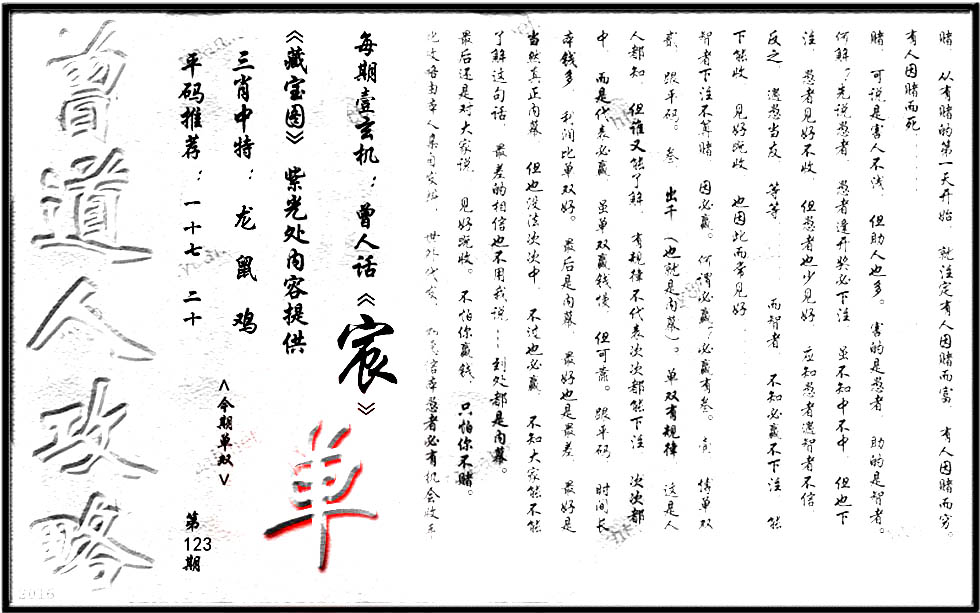 赌，从有赌的第一天开始，就注定有人因赌而富，有人因赌而穷。
有人因赌而死......
赌，可说是害人不浅，但助人也多。害的是愚者，助的是智者。
何解？先说愚者，愚者逢开奖必下注，虽不知中不中，但也下
注，愚者见好不收，但愚者也少见好，应知愚者遇智者不信
反之，遇愚当友，等等......而智者，不知必赢不下注，能
下能收，见好就收，也因此而常见好......
智者下注不算赌，因必赢。何谓必赢？必赢有叁。壹，情单双
贰，跟平码。叁，出千（也就是内幕）。单双有规律，这是人
人都知，但谁又能了解，有规律不代表次次都能下注，次次都
中，而是代表必赢，虽单双赢钱慢，但可靠。跟平码，时间长
本钱多，利润比单双好。最后是内幕，最好也是最差，最好是
当然真正内幕，但也没法次次中，不过也必赢，不知大家能不能
了解这句话，最差的相信也不用我说......到处都是内幕。
最后还是对大家说，见好就收。不怕你赢钱，只怕你不赌。
每期壹玄机：曾人话《宸》
《藏宝图》紫光处内容提供
三肖中特：龙 鼠 鸡
平码推荐：一十七 二十
<今期单双>
单
第123期
曾道人攻略
2016